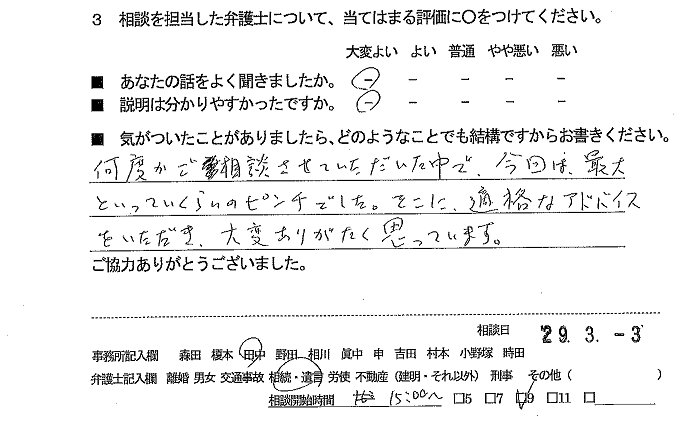 3 相談を担当した弁護士について、当てはまる評価に〇をつけてください。
大変よい よい 普通 やや悪い 悪い
■ あなたの話をよく聞きましたか。 － － － － －
■ 説明は分かりやすかったですか。 － － － － －
■ 気がついたことがありましたら、どのようなことでも結構ですからお書きください。
何度かご相談させていただいた中で、今回は、最大
といっていいくらいのピンチでした。そこに、適格なアドバイス
をいただき、大変ありがたく思っています。
ご協力ありがとうございました。
相談日 29.3.-3
事務所記入欄 森田 榎本 田中 野田 相川 眞中 申 吉田 村本 小野塚 時田
弁護士記入欄 離婚 男女 交通事故 相続・遺言 労使 不動産（建明・それ以外） 刑事 その他（ ）
相談開始時間 15:00〜 □5 □7 □9 □11 □